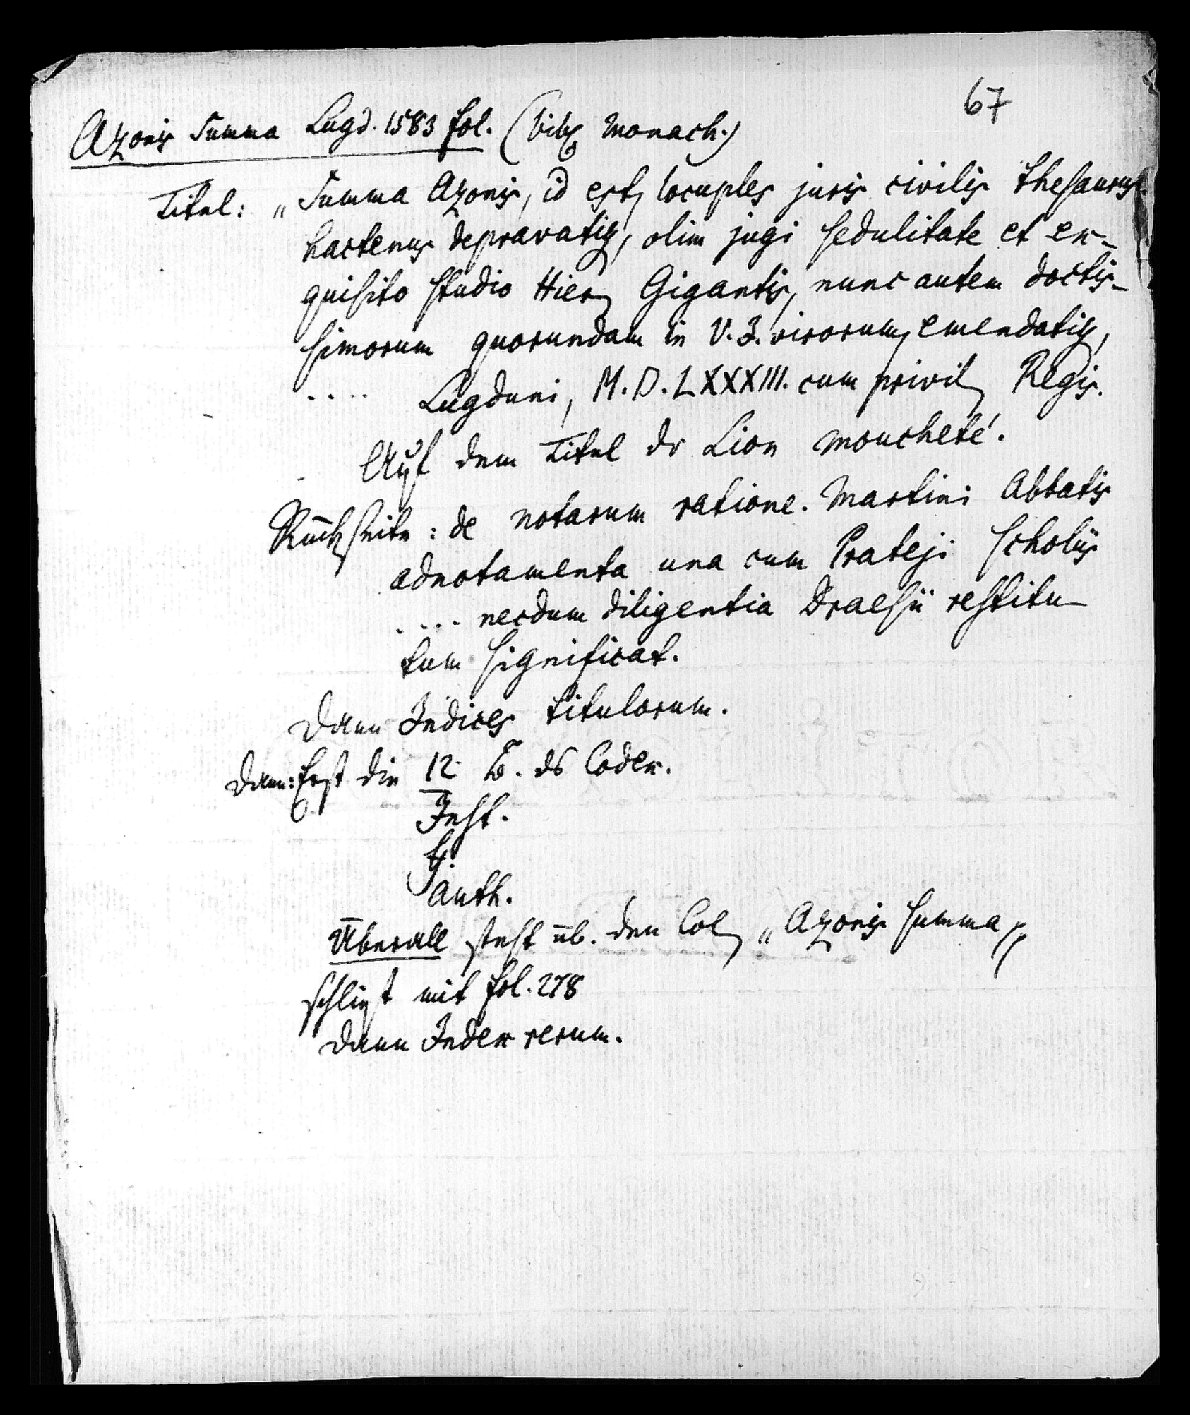 67
Azonis Summa Lugd. 1583 fol. (bibl. Monach.)
Titel: „Summa Azonis, id est, locuples juris civilis thesaurus
hactenus depravatis, olim jugi sedulitate et ex-
quisito studio Hier. Gigantis, nunc autem doctis-
simorum quorundam in V. J. virorum, emendatis,
.... Lugduni, M.D.LXXXIII. cum privil. Regis.
Auf dem Titel dr Lion moucheté.
Rückseite: de notarum ratione. Martini Abbatis
adnotamenta una cum Prateji scholiis
.... necdum diligentia Draesii restitu-
tum significat.
Dann Indices titulorum.
Dann: Erst die 12 B. ds Codex.
Inst.
Auth.
Überall steht üb. den Col. „Azonis Summa"
schließt mit fol. 278
Dann Index rerum.